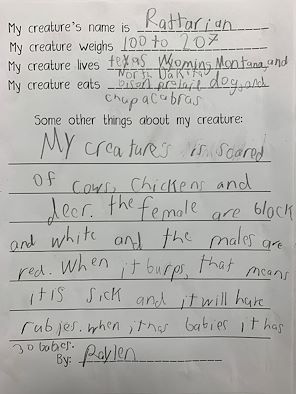 My creature's name is Rattarian
My creature weighs 100 to 207
My creature lives texas Wyoming Montana, and
North Dakita
My creature eats bison prairie dog, and
chupacabras
Some other things about my creature:
My creature's is scared
of cows, chickens and
deer. the female are block
and white and the males are
red. When it burps, that means
it is sick and it will have
rubies. when it has babies it has
30 babies.
By: Raylen